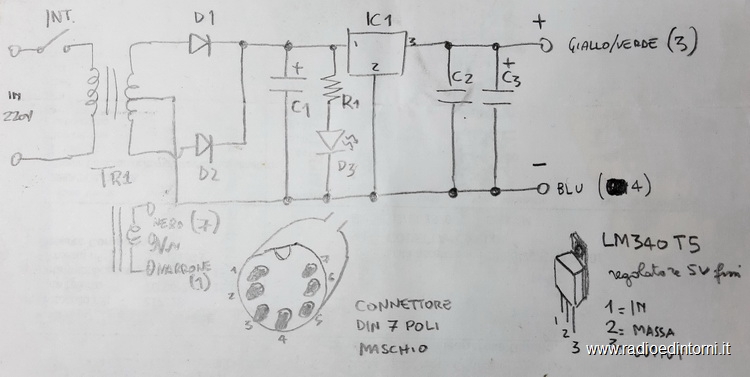 INT.
D1
IC1
+
1
3
GIALLO/VERDE (3)
IN
220V
+
C1
R1
2
C2
+
C3
D3
D2
TR1
-
BLU (4)
NERO (7)
9V
MARRONE
(1)
1
2
3
4
5
6
7
CONNETTORE
DIN 7 POLI
MASCHIO
LM340T5
regolatore 5V
1 = IN
2 = MASSA
3
1
2
3
www.radioedintorni.it